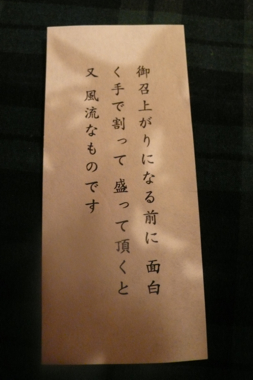 御召上がりになる前に 面白
く手で割って 盛って頂くと
又 風流なものです